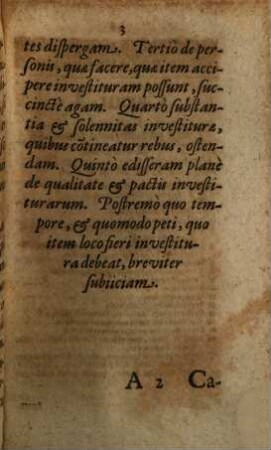 3
tes dispergam. Tertiò de per-
sonis, quæ facere, quæ item acci
pere investituram possunt, suc-
cinctè agam. Quartò substan-
tia & solennitas investituræ,
quibus cōtineatur rebus, osten-
dam. Quintò edisseram planè
de qualitate & pactis investi-
turarum. Postremò quo tem-
pore, & quomodo peti, quo
item loco fieri investitu-
ra debeat, breviter
subiiciam.
A 2 Ca-